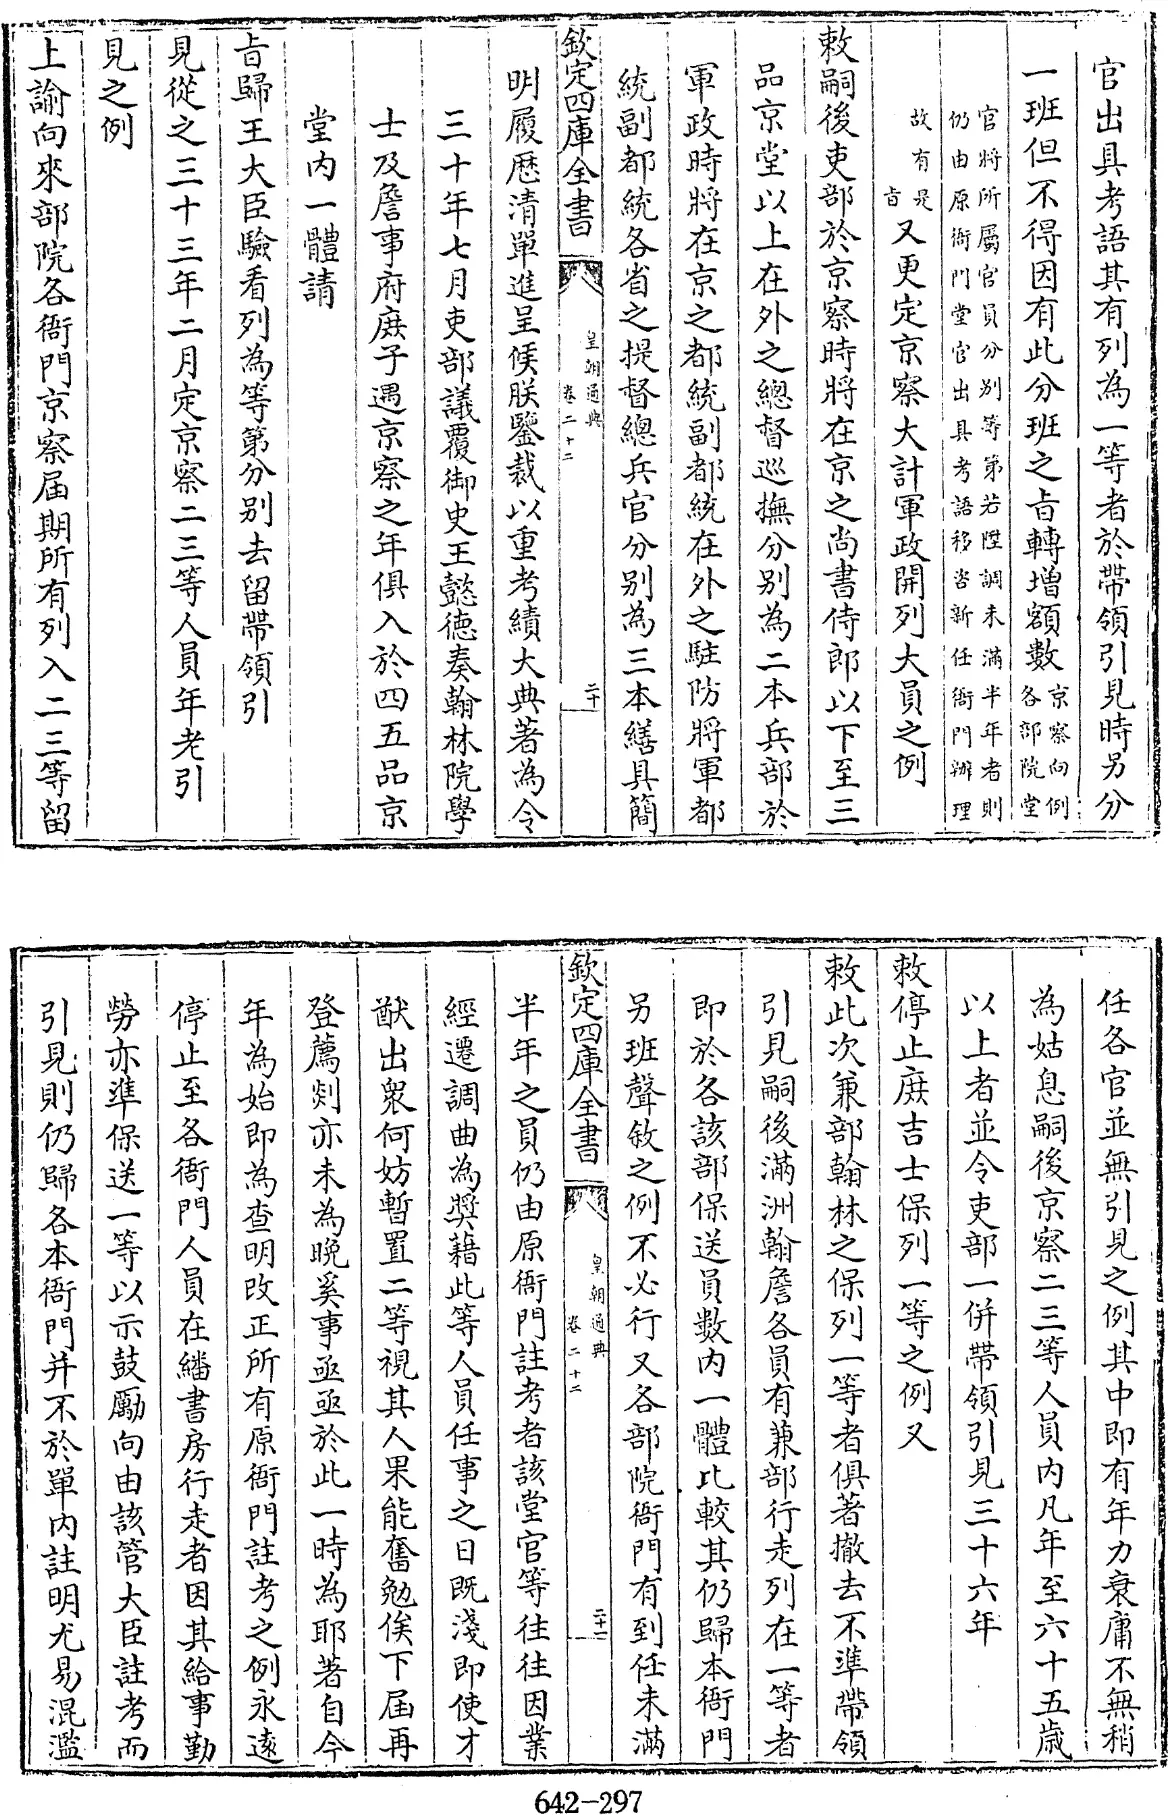 官出具考語其有列為一等者於帶領引見時另分
一班但不得因有此分班之旨轉增額數京察向例
各部院堂
官將所屬官員分別等第若陞調未滿半年者則
仍由原衙門堂官出具考語移咨新任衙門辦理
故有是
旨又更定京察大計軍政開列大員之例
敕嗣後吏部於京察時將在京之尚書侍郎以下至三
品京堂以上在外之總督巡撫分別為二本兵部於
軍政時將在京之都統副都統在外之駐防將軍都
統副都統各省之提督總兵官分別為三本繕具簡
欽定四庫全書
皇朝通典
卷二十二
二十
明履歷清單進呈候朕鑒裁以重考績大典著為令
三十年七月吏部議覆御史王懿德奏翰林院學
士及詹事府庶子遇京察之年俱入於四五品京
堂內一體請
旨歸王大臣驗看列為等第分別去留帶領引
見從之三十三年二月定京察二三等人員年老引
見之例
上諭向來部院各衙門京察屆期所有列入二三等留
任各官並無引見之例其中即有年力衰庸不無稍
為姑息嗣後京察二三等人員內凡年至六十五歲
以上者並令吏部一併帶領引見三十六年
敕停止庶吉士保列一等之例又
敕此次兼部翰林之保列一等者俱著撤去不準帶領
引見嗣後滿洲翰詹各員有兼部行走列在一等者
即於各該部保送員數內一體比較其仍歸本衙門
另班聲敘之例不必行又各部院衙門有到任未滿
欽定四庫全書
皇朝通典
卷二十二
二十一
半年之員仍由原衙門註考者該堂官等往往因業
經遷調曲為獎藉此等人員任事之日既淺即使才
猷出眾何妨暫置二等視其人果能奮勉俟下屆再
登薦剡亦未為晚奚事亟亟於此一時為耶著自今
年為始即為查明改正所有原衙門註考之例永遠
停止至各衙門人員在繙書房行走者因其給事勤
勞亦準保送一等以示鼓勵向由該管大臣註考而
引見則仍歸各本衙門并不於單內註明尤易混濫
642-297